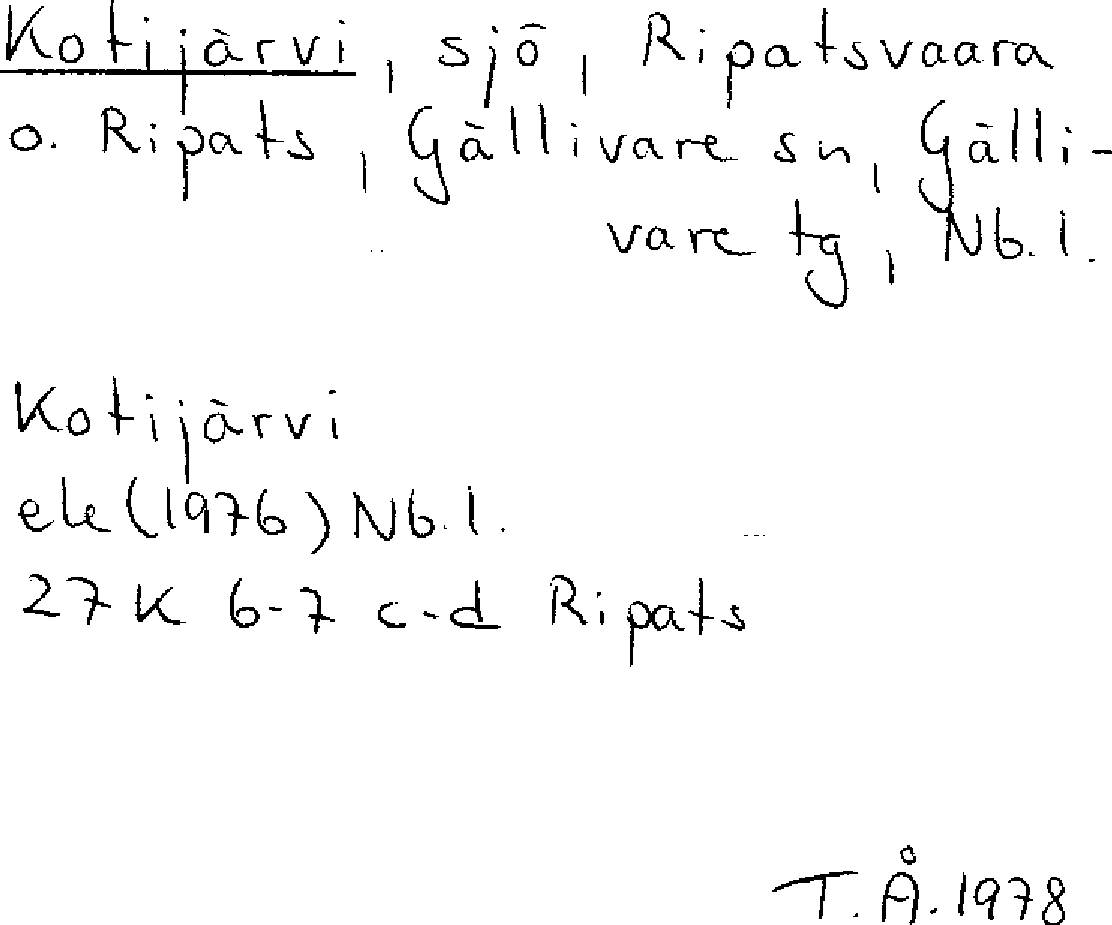 Kotijärvi, sjö, Ripatsvaara
o. Ripats, Gällivare sn, Gälli-
vare tg, Nb. l.
Kotijärvi
ek (1976) Nb. l.
27 K 6-7 c-d Ripats
T. Å. 1978